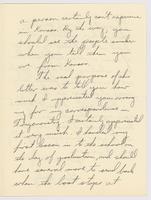 a person certainly can't experience
in Kansas. By the way you
should see the people
when you tell them you
are from Kansas.
The real purpose of this
letter was to tell you how
much I appreciated your
ing for my correspondence in
I certainly appreciated
it very much. I handed my
first lesson in to the school on
the day of graduation, and shall
have several more to send back
when the boat stops at